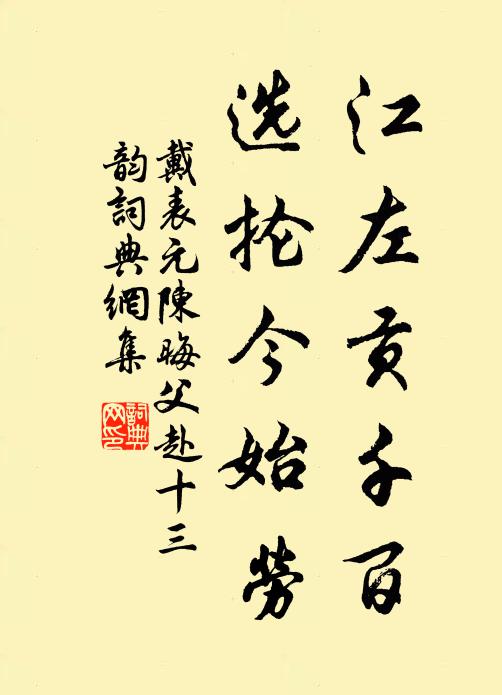 江左贡千百
选抡今始劳
戴表元陳晦父赴十三
韵詞典網集
詞典网印